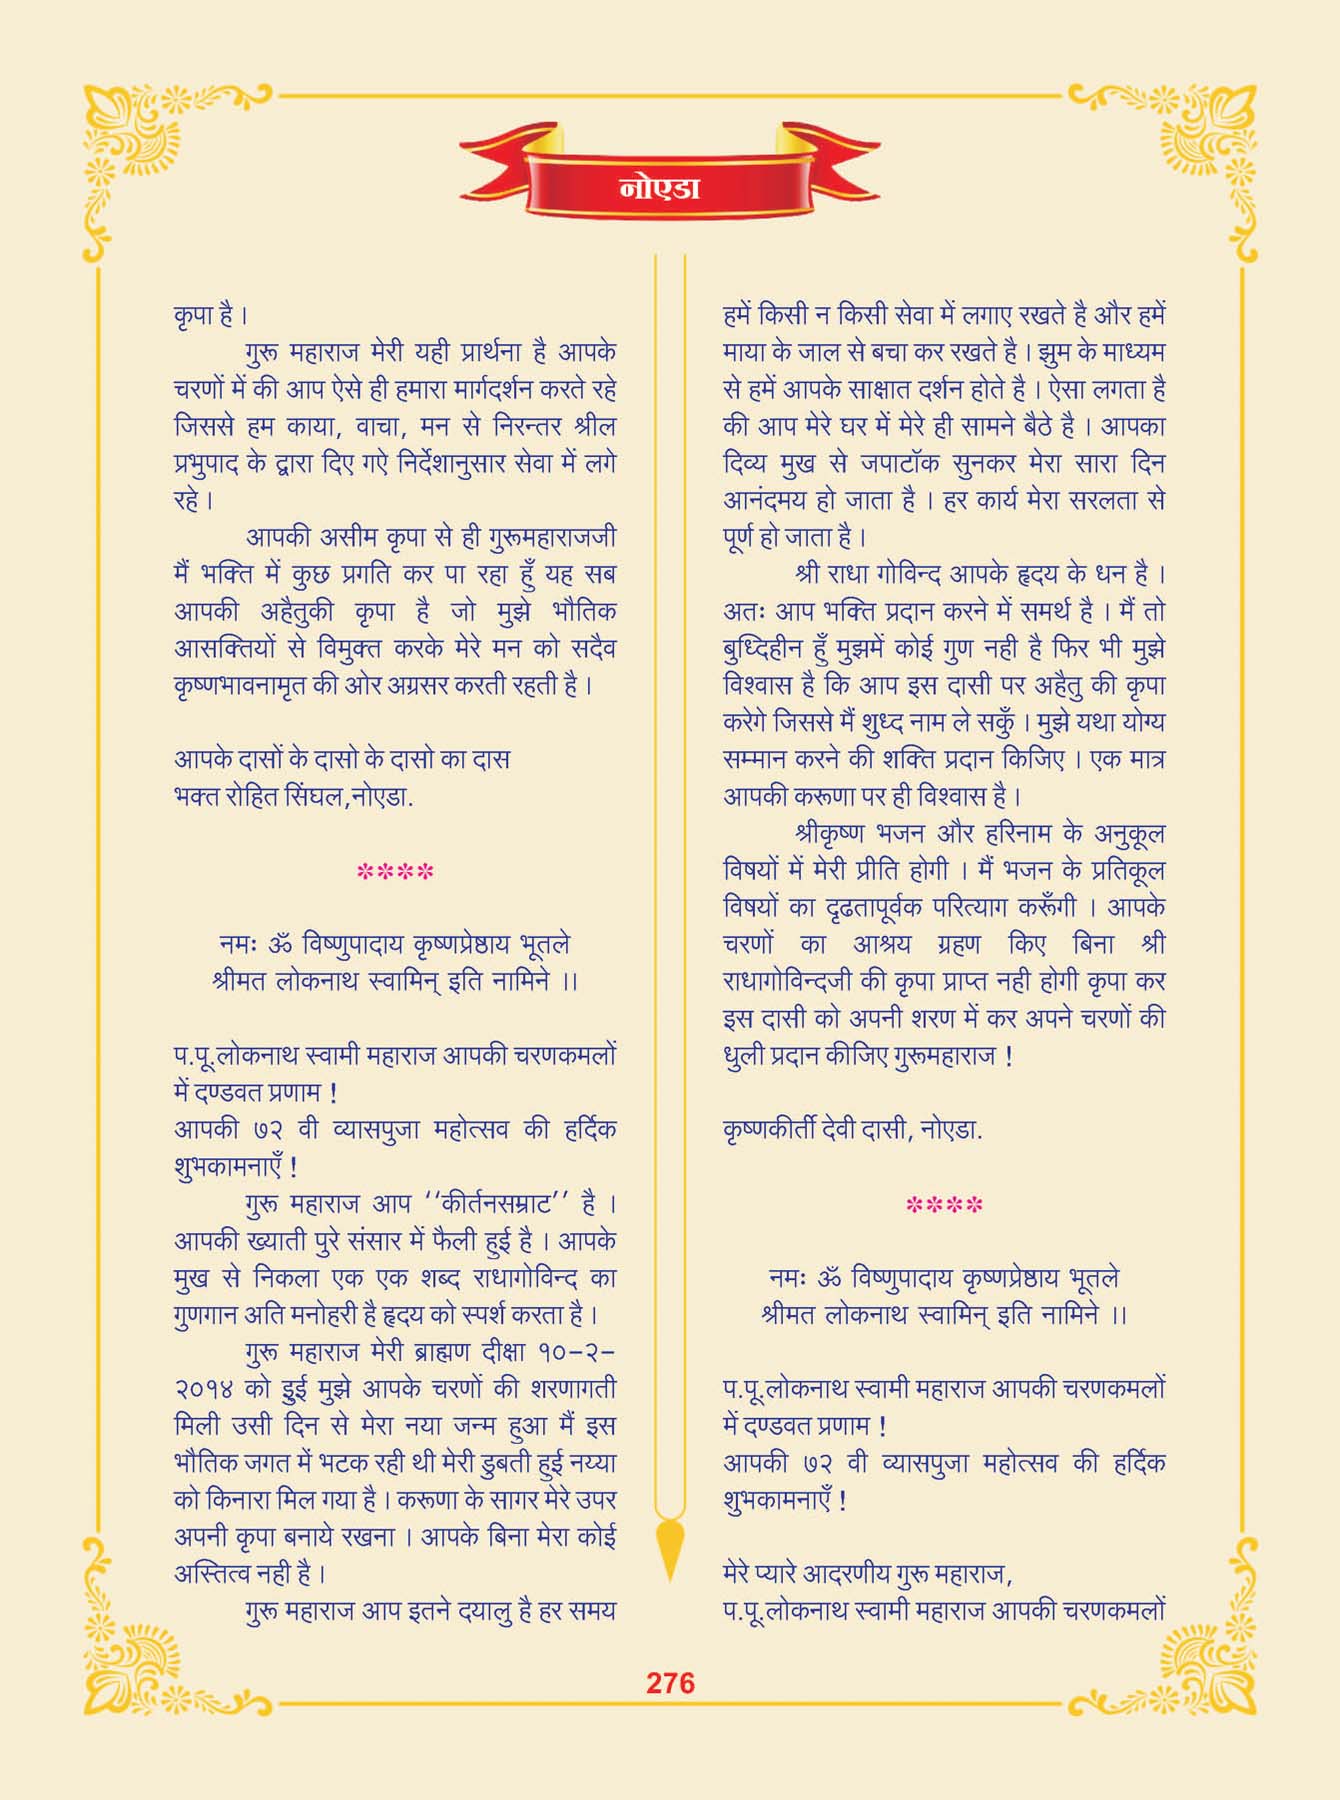 नोएडा
कृपा है ।
गुरू महाराज मेरी यही प्रार्थना है आपके
चरणों में की आप ऐसे ही हमारा मार्गदर्शन करते रहे
जिससे हम काया, वाचा, मन से निरन्तर श्रील
प्रभुपाद के द्वारा दिए गऐ निर्देशानुसार सेवा में लगे
रहे ।
आपकी असीम कृपा से ही गुरूमहाराजजी
मैं भक्ति में कुछ प्रगति कर पा रहा हुँ यह सब
आपकी अहैतुकी कृपा है जो मुझे भौतिक
आसक्तियों से विमुक्त करके मेरे मन को सदैव
कृष्णभावनामृत की ओर अग्रसर करती रहती है ।
आपके दासों के दासो के दासो का दास
भक्त रोहित सिंघल,नोएडा.
****
नमः ॐ विष्णुपादाय कृष्णप्रेष्ठाय भूतले
श्रीमत लोकनाथ स्वामिन् इति नामिने ।।
प.पू.लोकनाथ स्वामी महाराज आपकी चरणकमलों
में दण्डवत प्रणाम !
आपकी ७२ वी व्यासपुजा महोत्सव की हर्दिक
शुभकामनाएँ !
गुरू महाराज आप ‘‘कीर्तनसम्राट’’ है ।
आपकी ख्याती पुरे संसार में फैली हुई है । आपके
मुख से निकला एक एक शब्द राधागोविन्द का
गुणगान अति मनोहरी है हृदय को स्पर्श करता है ।
गुरू महाराज मेरी ब्राह्मण दीक्षा १०-२-
२०१४ को हुई मुझे आपके चरणों की शरणागती
मिली उसी दिन से मेरा नया जन्म हुआ मैं इस
भौतिक जगत में भटक रही थी मेरी डुबती हुई नय्या
को किनारा मिल गया है । करूणा के सागर मेरे उपर
अपनी कृपा बनाये रखना । आपके बिना मेरा कोई
अस्तित्व नही है ।
गुरू महाराज आप इतने दयालु है हर समय
हमें किसी न किसी सेवा में लगाए रखते है और हमें
माया के जाल से बचा कर रखते है । झुम के माध्यम
से हमें आपके साक्षात दर्शन होते है । ऐसा लगता है
की आप मेरे घर में मेरे ही सामने बैठे है । आपका
दिव्य मुख से जपाटॉक सुनकर मेरा सारा दिन
आनंदमय हो जाता है । हर कार्य मेरा सरलता से
पूर्ण हो जाता है ।
श्री राधा गोविन्द आपके हृदय के धन है ।
अतः आप भक्ति प्रदान करने में समर्थ है । मैं तो
बुध्दिहीन हुँ मुझमें कोई गुण नही है फिर भी मुझे
विश्वास है कि आप इस दासी पर अहैतु की कृपा
करेगे जिससे मैं शुध्द नाम ले सकुँ । मुझे यथा योग्य
सम्मान करने की शक्ति प्रदान किजिए । एक मात्र
आपकी करूणा पर ही विश्वास है ।
श्रीकृष्ण भजन और हरिनाम के अनुकूल
विषयों में मेरी प्रीति होगी । मैं भजन के प्रतिकूल
विषयों का दृढतापूर्वक परित्याग करूँगी । आपके
चरणों का आश्रय ग्रहण किए बिना श्री
राधागोविन्दजी की कृपा प्राप्त नही होगी कृपा कर
इस दासी को अपनी शरण में कर अपने चरणों की
धुली प्रदान कीजिए गुरूमहाराज !
कृष्णकीर्ती देवी दासी, नोएडा.
****
नमः ॐ विष्णुपादाय कृष्णप्रेष्ठाय भूतले
श्रीमत लोकनाथ स्वामिन् इति नामिने ।।
प.पू.लोकनाथ स्वामी महाराज आपकी चरणकमलों
में दण्डवत प्रणाम !
आपकी ७२ वी व्यासपुजा महोत्सव की हर्दिक
शुभकामनाएँ !
मेरे प्यारे आदरणीय गुरू महाराज,
प.पू.लोकनाथ स्वामी महाराज आपकी चरणकमलों
276